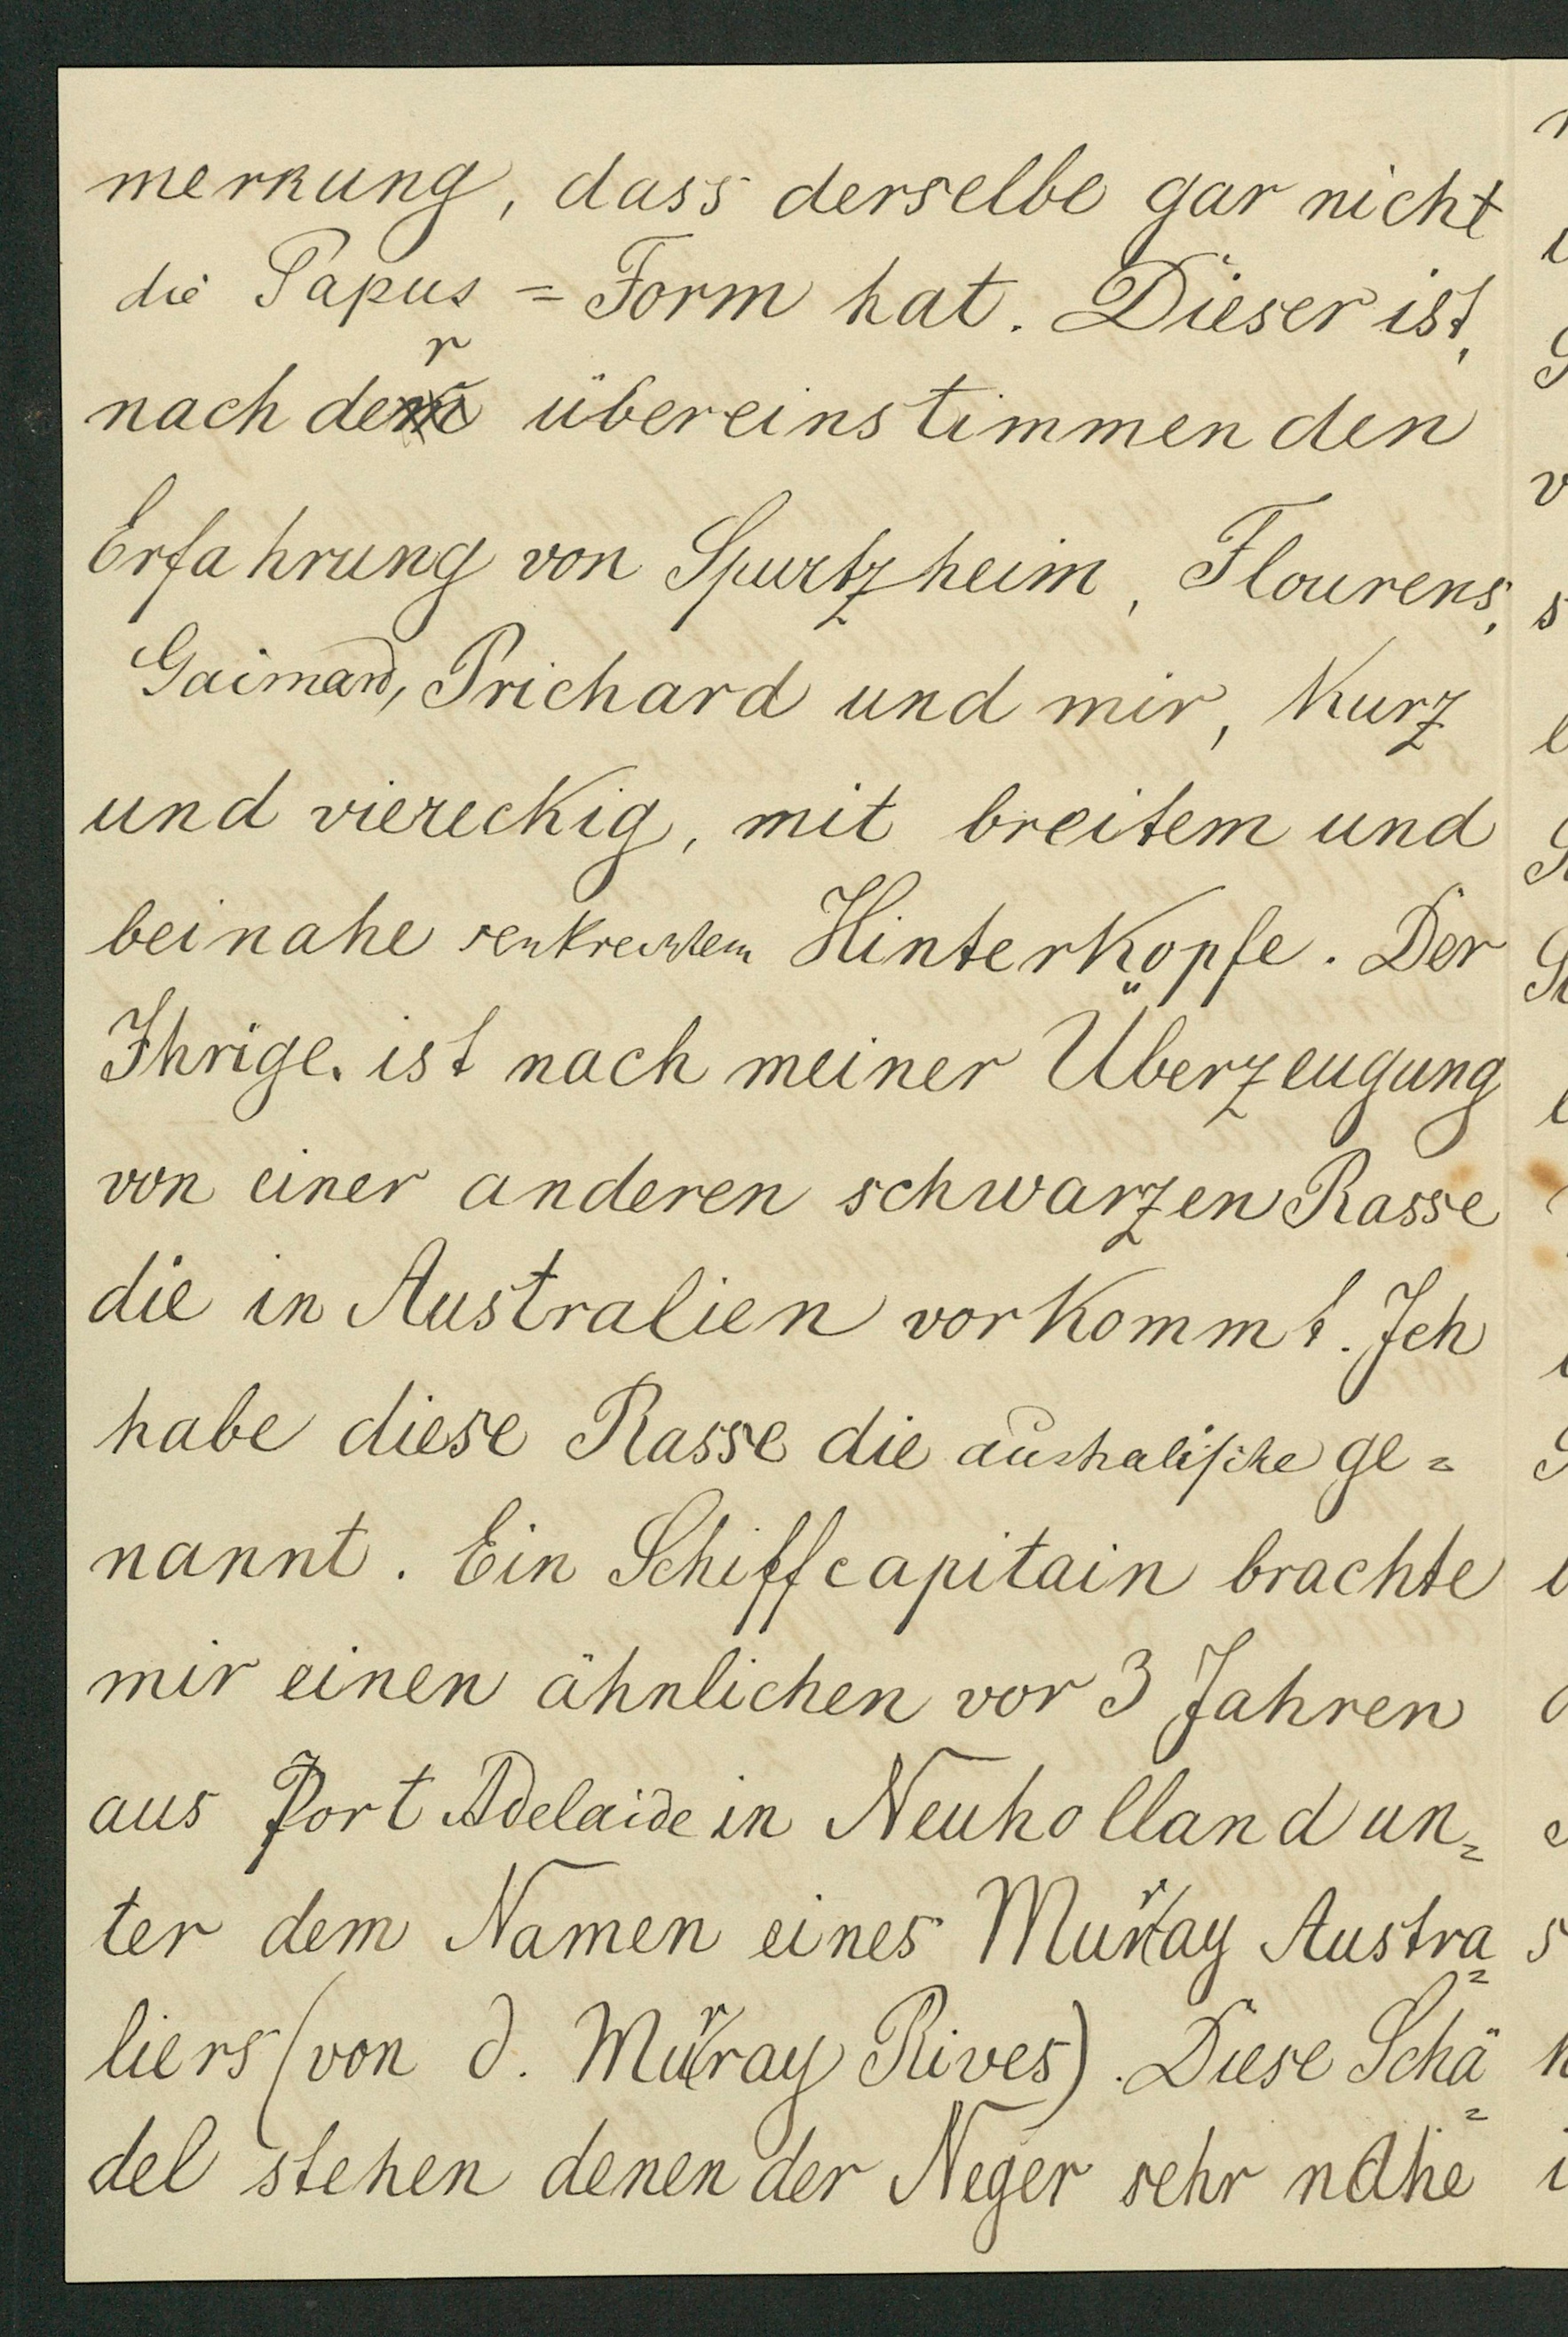 merkung, dass derselbe gar nicht
die Papus = Form hat. Dieser ist,
nach der übereinstimmenden
Erfahrung von Spurtzheim, Flourens,
Gaimard, Prichard und mir, kurz
und viereckig, mit breitem und
beinahe senkrechtem Hinterkopfe. Der
Ihrige. ist nach meiner Überzeugung
von einer anderen schwarzen Rasse
die in Australien vorkommt. Ich
habe diese Rasse die australische ge=
nannt. Ein Schiffcapitain brachte
mir einen ähnlichen vor 3 Jahren
aus Port Adelaide in Neuholland un=
ter dem Namen eines Murray Austra=
liers (von d. Murray Rives). Diese Schä=
del stehen denen der Neger sehr nahe